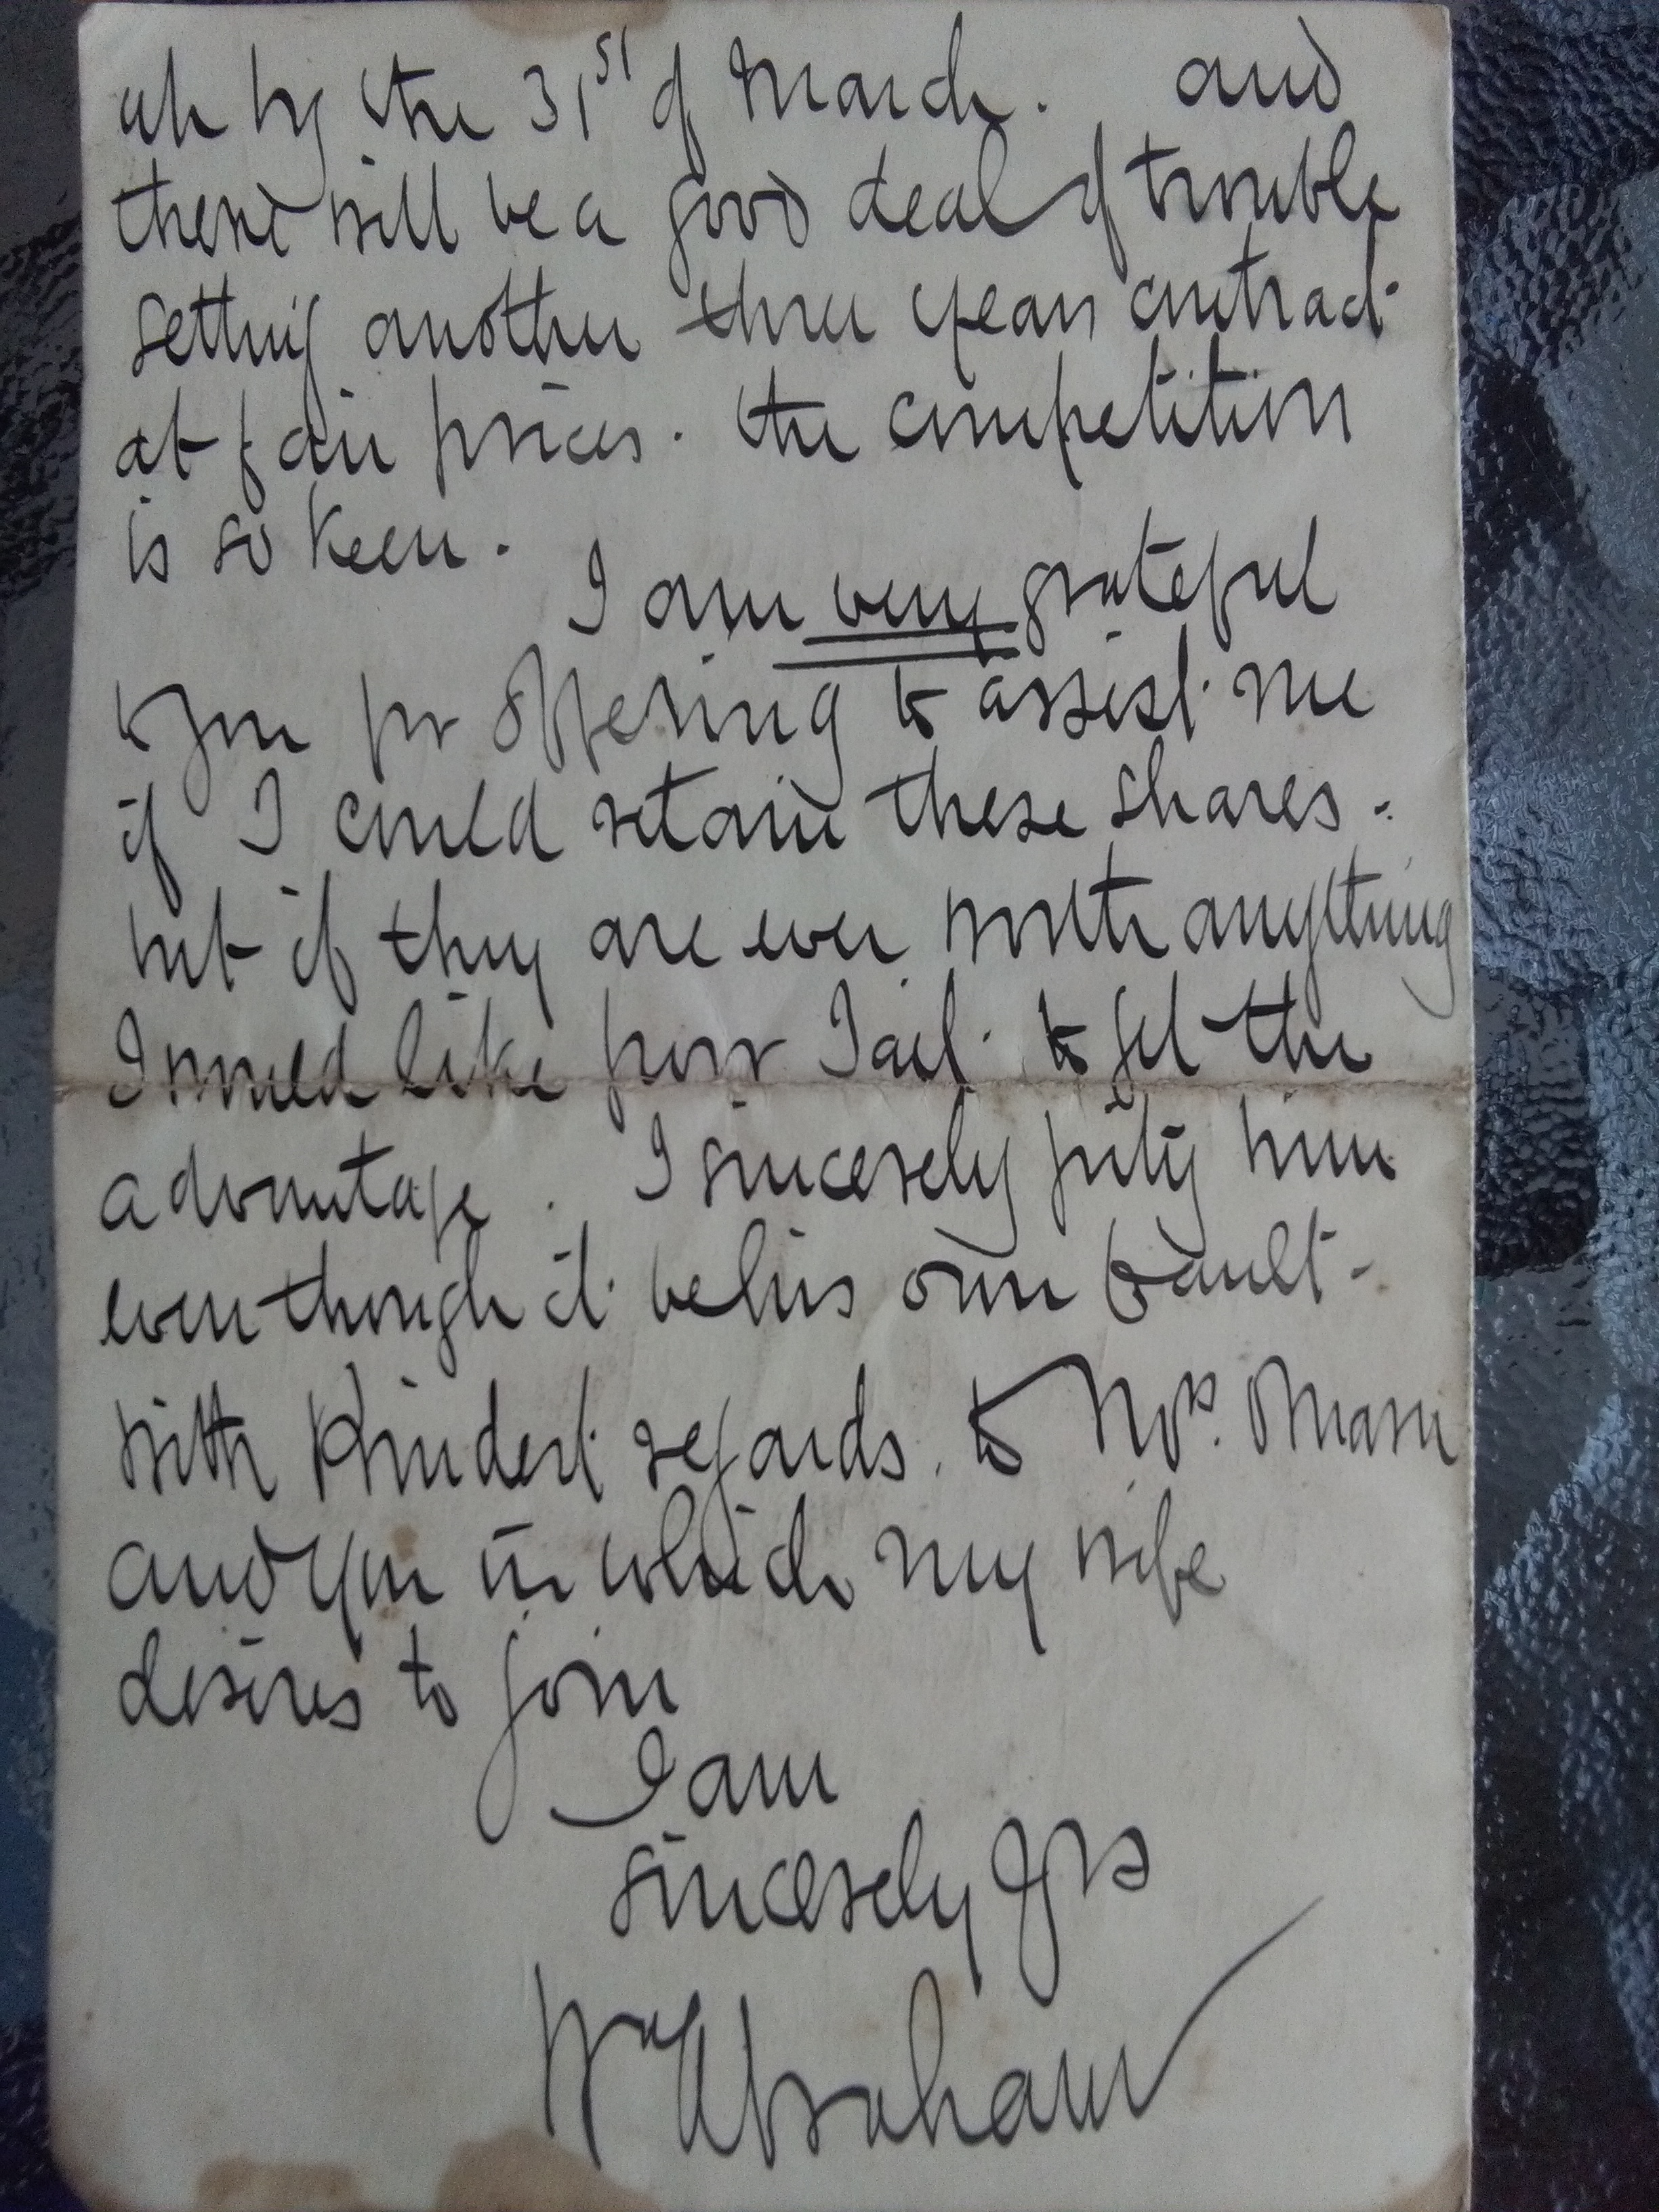 up by the 31st of March. and
there will be a good deal of trouble
getting another three years contract
at fair prices. the competition
is so keen.
I am very grateful
to you for offering to assist me
if I could retain these shares.
but if they are ever worth anything
I would like poor to get the
advantage. I sincerely pity him
even though it be his own fault-
with Kindest regards. to Mrs.
and you in which my wife
desires to join
I am
sincerely Yrs
Wm Abraham